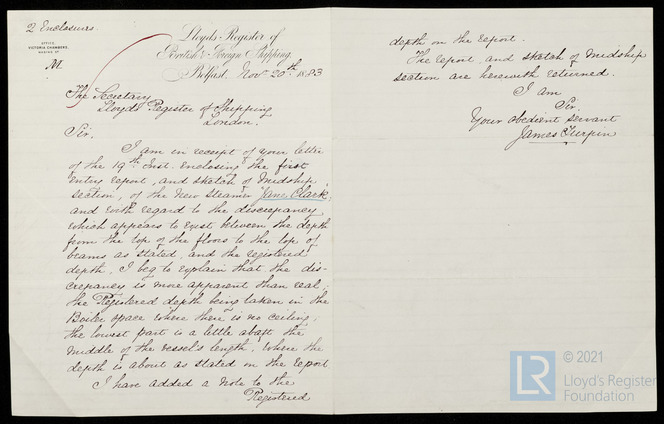 2 Enclosures.
OFFICE,
VICTORIA CHAMBERS,
WARING ST
M.
Lloyd's Register of
British & Foreign Shipping.
Belfast, Nov 20th 1883
The Secretary
Lloyds Register of Shipping
London.
Sir,
I am in receipt of your letter
of the 19th Inst. enclosing the first
entry report, and sketch of Midship
section, of the New Steamer "Jane Clark",
and with regard to the discrepancy
which appears to exist between the depth
from the top of the floors to the top of
beams as stated, and the registered
depth, I beg to explain that the dis-
crepancy is more apparent than real,
the Registered depth being taken in the
Boiler space where there is no ceiling;
the lowest part is a little abaft the
middle of the vessel's length, where the
depth is about as stated on the report
I have added a note to the
Registered
depth on the report.
The report, and sketch of Midship
section are herewith returned.
I am
Sir,
Your obedient servant
James Turpin
© 2021
LR
Lloyd's Register
Foundation